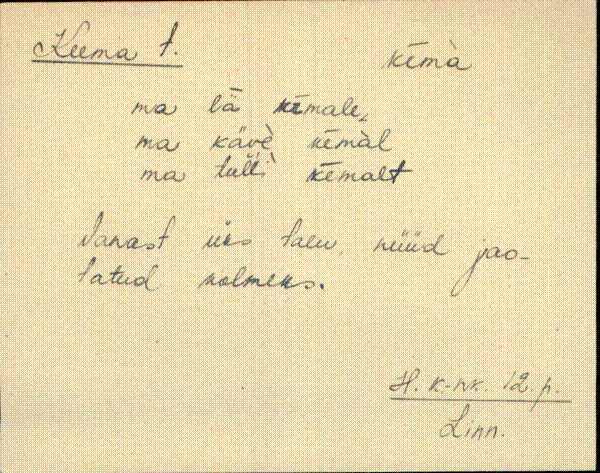 Keema t.
kēmà
ma lǟ kēmale,
ma kävè kēmàl
ma tulìì kēmalt
Vanast üks talu, nüüd jao-
tatud kolmeks.
H. k-nk. 12. p.
Linn.